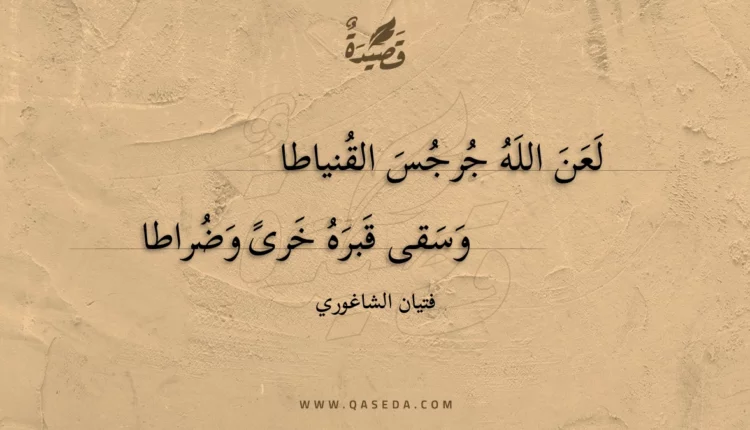 قصيدة
لَعَنَ اللَهُ جُرجُسَ القُنياطا
وَسَقى قَبرَهُ خَرىً وَضُراطا
فتيان الشاغوري
WWW.QASEDA.COM